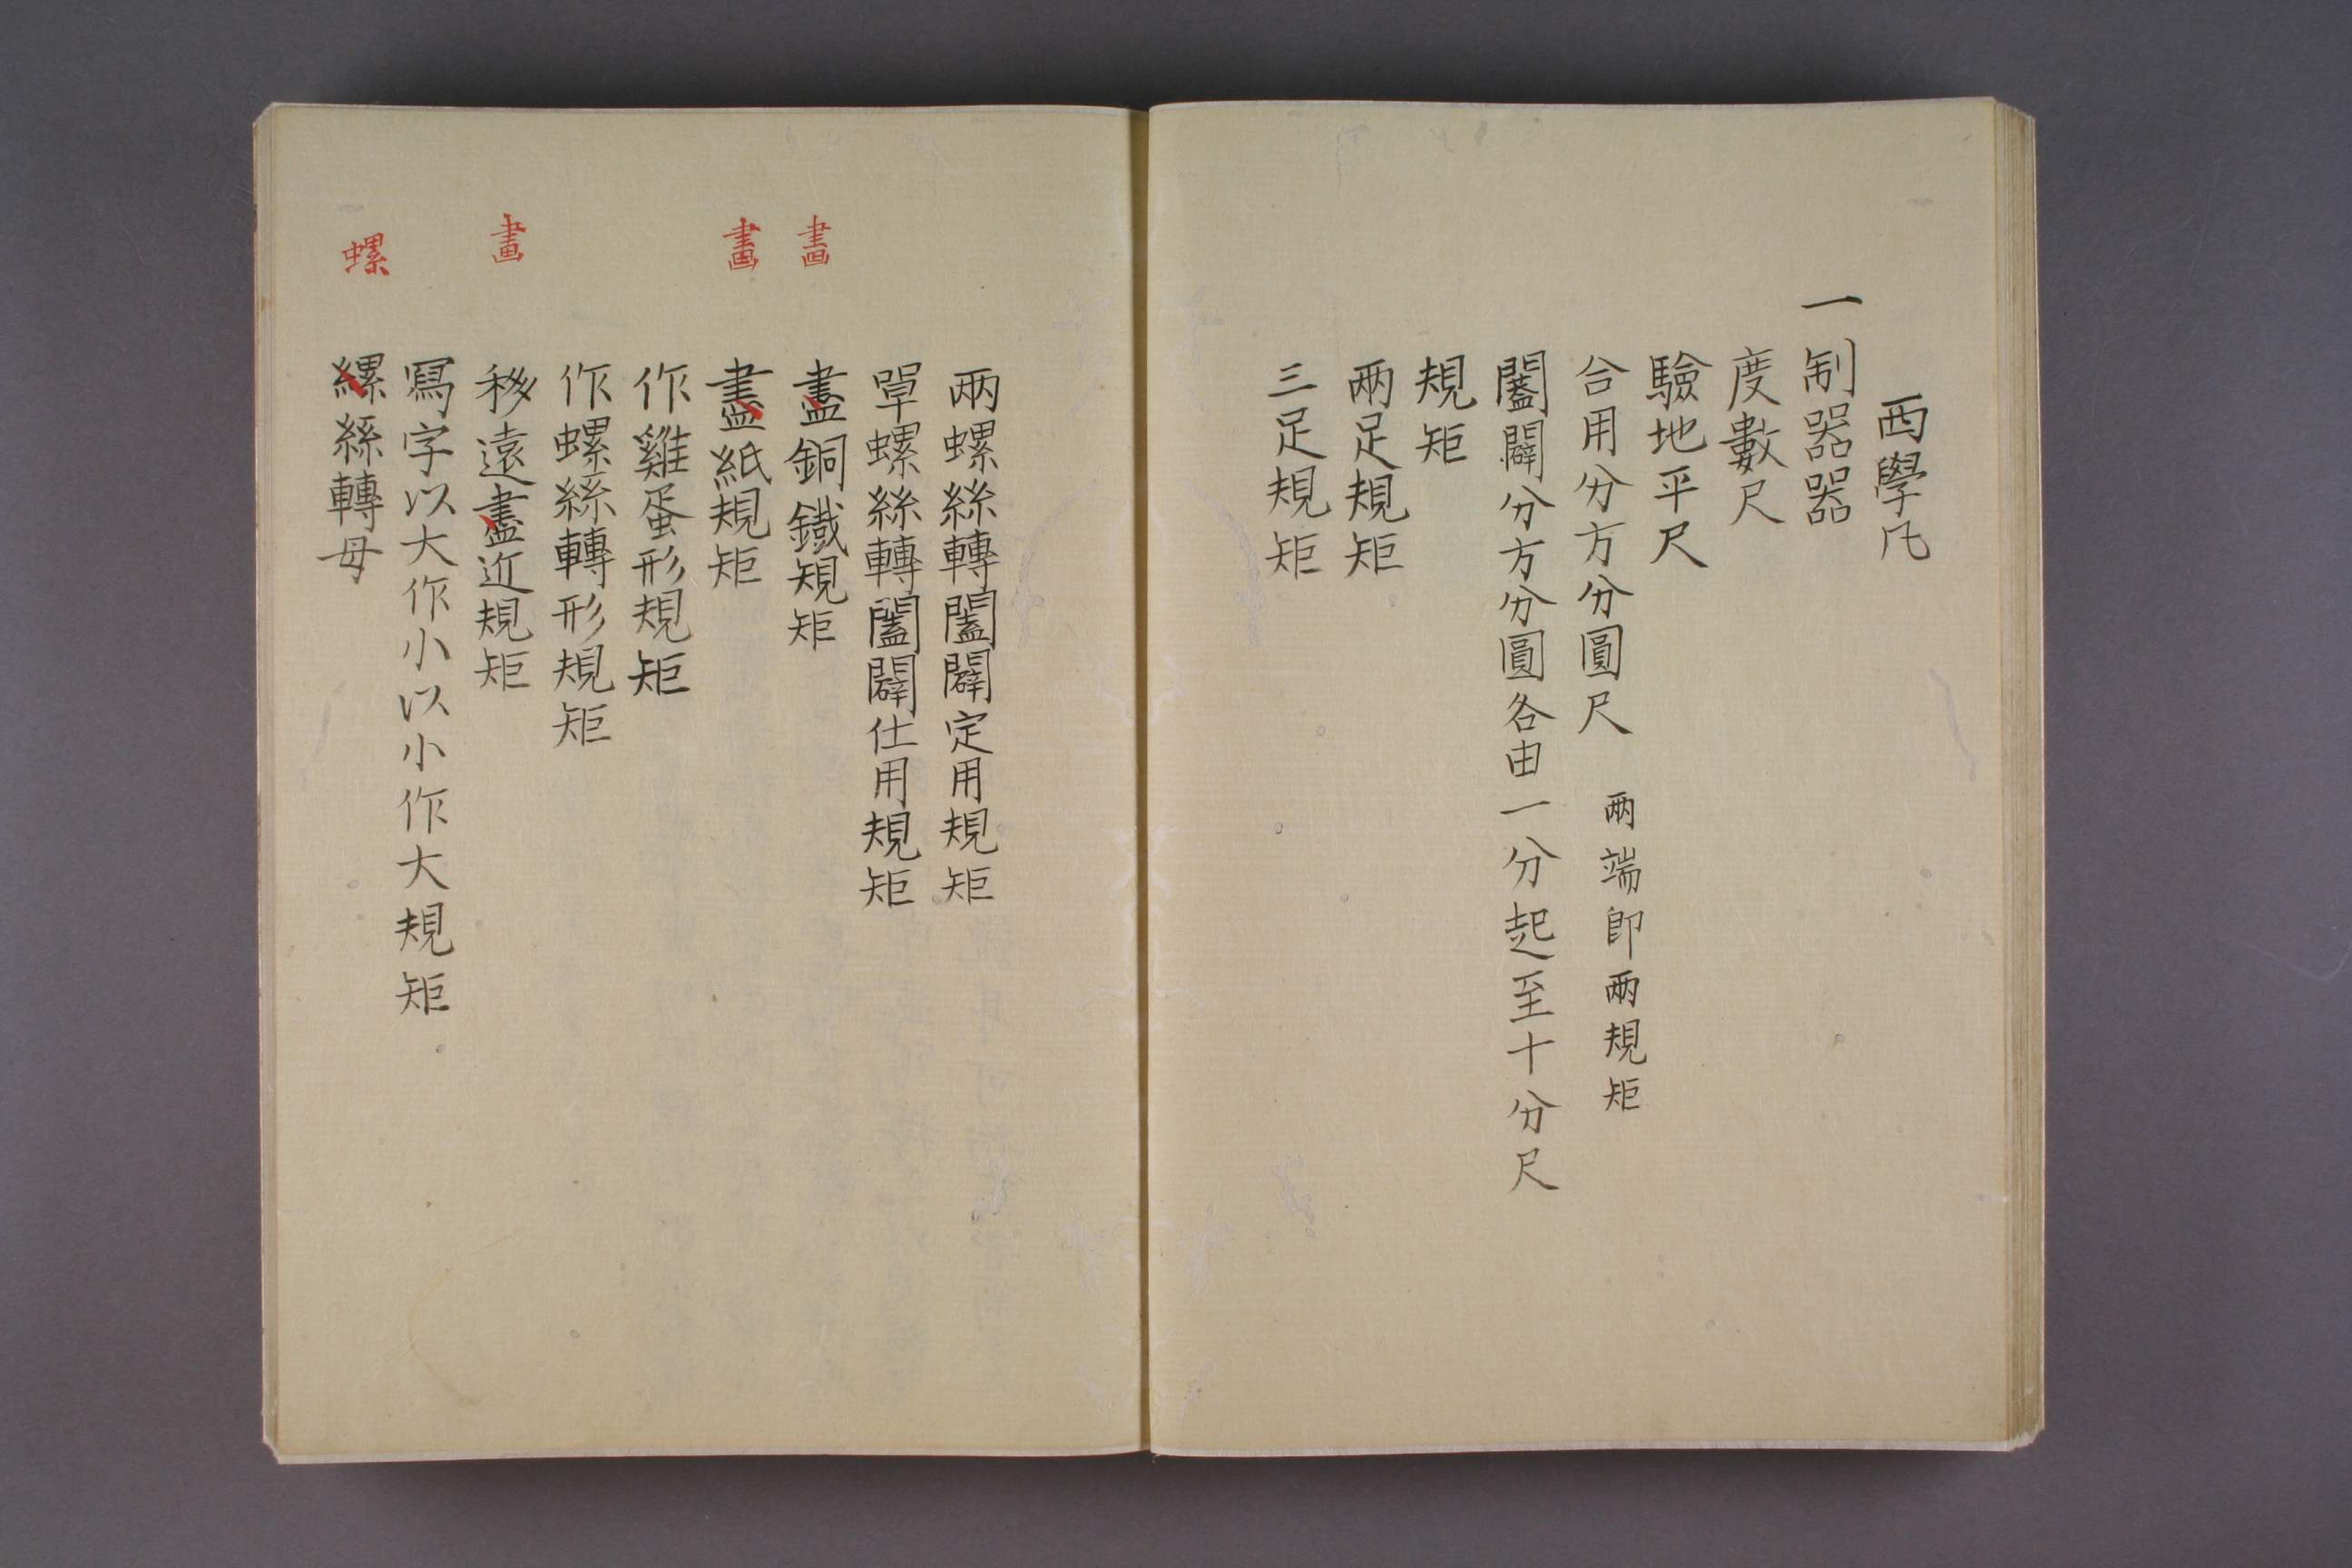 西學凡
一制器器
度數尺
驗地平尺
合用分方分圓尺 兩端即兩規矩
闔闢分方分圓各由一分起至十分尺
規矩
兩足規矩
三足規矩
兩螺絲轉闔闢定用規矩
單螺絲轉闔闢任用規矩
畫
盡銅鐵規矩
畫
盡紙規矩
作雞蛋形規矩
作螺絲轉形規矩
畫
移遠盡近規矩
寫字以大作小以小作大規矩
螺
縲絲轉母